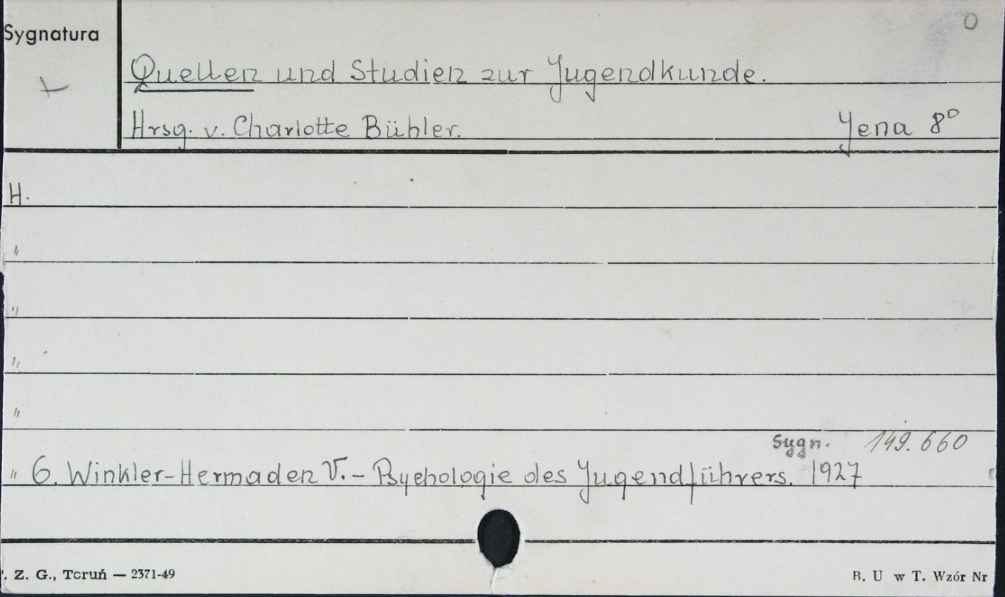 Sygnatura
O
Quellen und Studien zur Jugendkunde.
Hrsg. v. Charlotte Bühler. Jena 8°
H.
"
"
"
"
Sygn. 149.660
" 6. Winkler-Hermaden V.- Psychologie des Jugendführers. 1927
. Z. G., Toruń — 2371-49
B. U w T. Wzór Nr